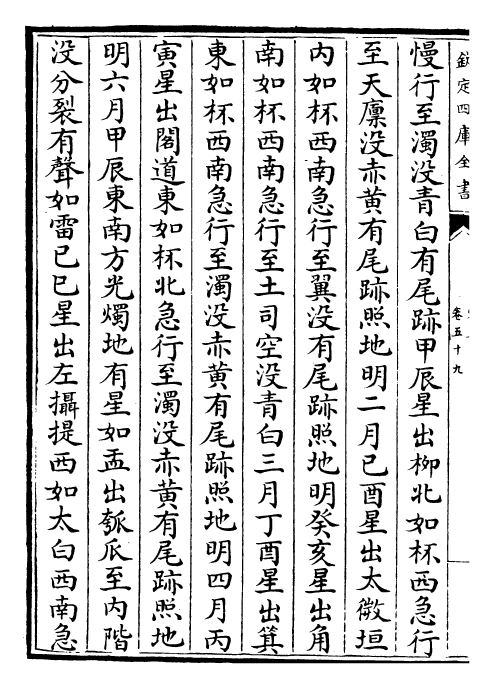 欽定四庫全書
卷五十九
慢行至濁没青白有尾跡甲辰星出柳北如杯西急行
至天廪没赤黄有尾跡照地明二月已酉星出太微垣
内如杯西南急行至翼没有尾跡照地明癸亥星出角
南如杯西南急行至土司空没青白三月丁酉星出箕
東如杯西南急行至濁没赤黄有尾跡照地明四月丙
寅星出閣道東如杯北急行至濁没赤黄有尾跡照地
明六月甲辰東南方光燭地有星如盂出瓠瓜至内階
没分裂有聲如雷已已星出左攝提西如太白西南急